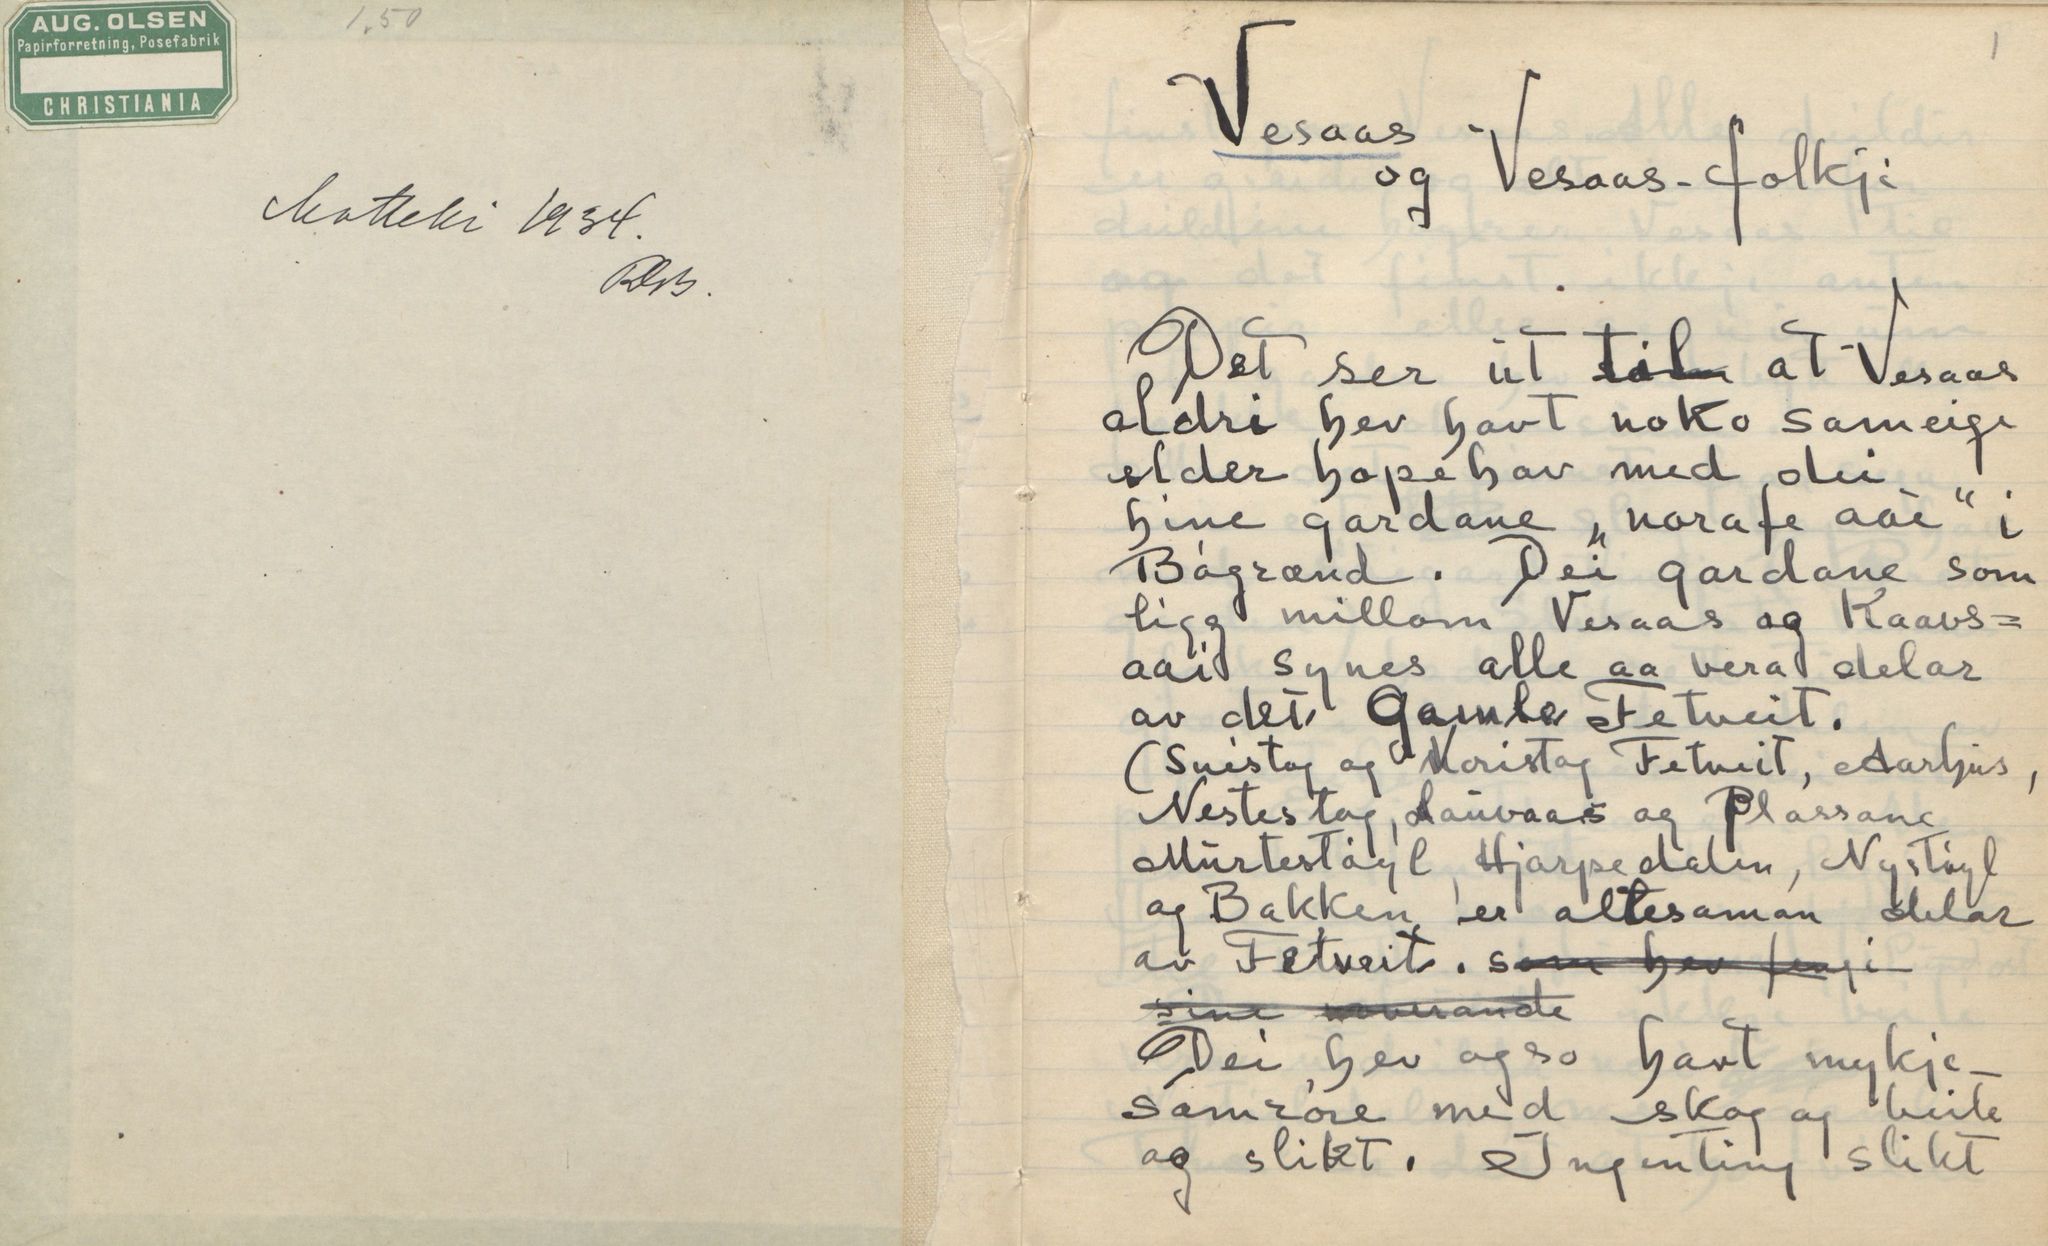 AUG. OLSEN
Papirforretning, Posefabrik
CHRISTIANIA
1,50
Motteki 1934.
RBB.
1
Vesaas
og Vesaas-folkji
Det ser út til at Vesaas
aldri hev havt noko sameige
elder hopehav med dei
hine gardane „norafe aaè“ i
Bógrænd. Dei gardane som
ligg millom Vesaas og Kaavs=
aai synes alle aa vera delar
av det Gamle Fetveit.
(Suistog og Noristog Fetveit, Aarhus,
Nestestog, Lauvaas og Plassane
Murtestóyl, Hjarpedalen, Nystóyl
og Bakken er altesaman delar
av Fetveit. som hev fengi
sine noverande
Dei hev ogso havt mykje
samróre med skog og beite
og slikt. Ingenting slikt